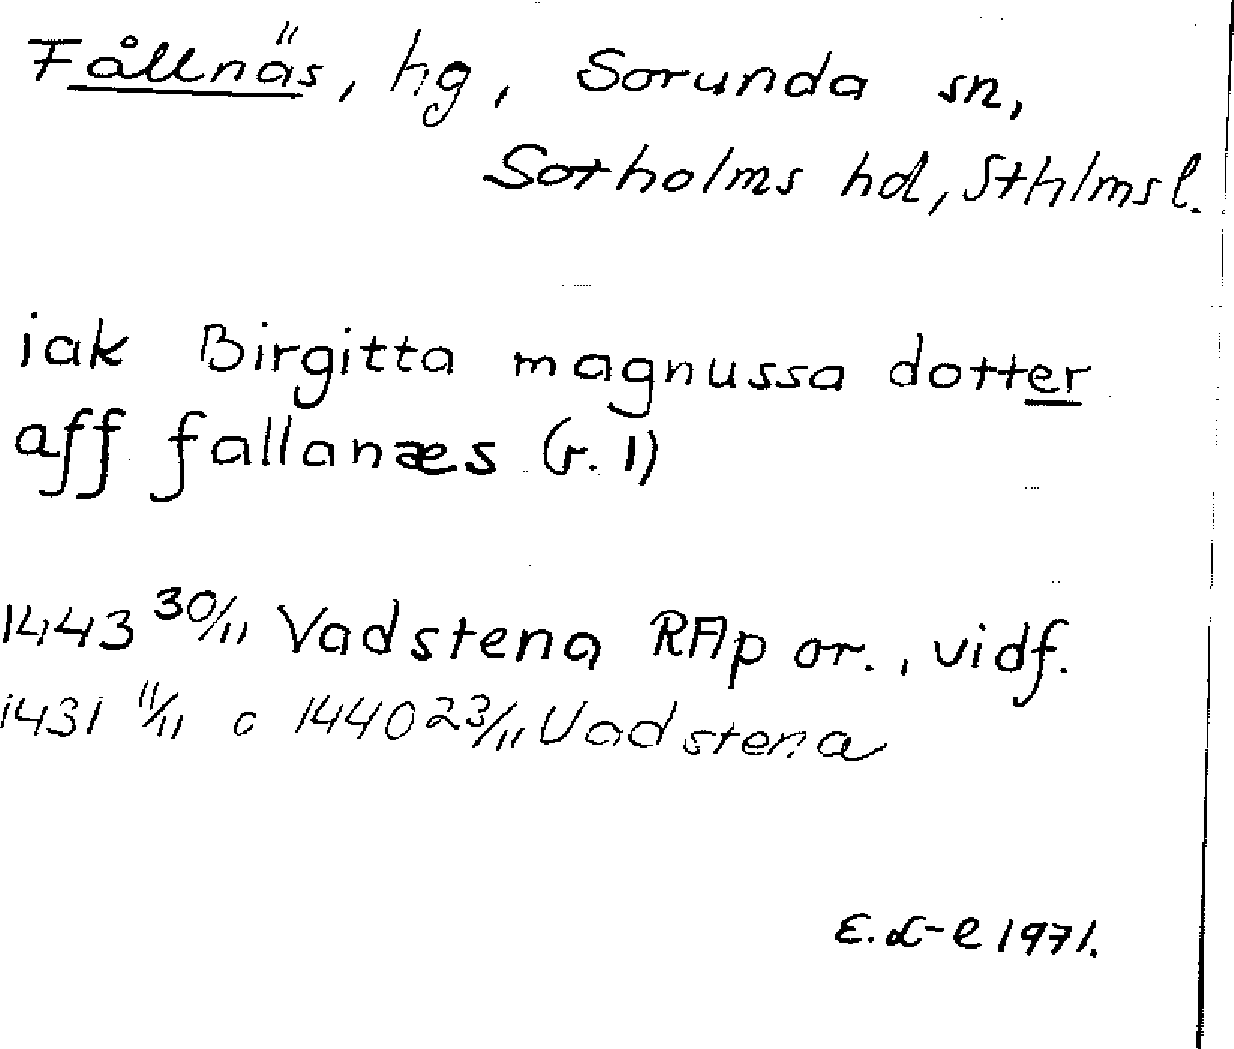 Fållnäs, hg, Sorunda sn,
Sotholms hd, Sthlms l.
iak Birgitta magnussa dotter
aff fallanæs (r. 1)
1443 30/11 Vadstena RAp or., vidf.
1431 11/11 o 1440 23/11 Vadstena
E. L-e 1971.